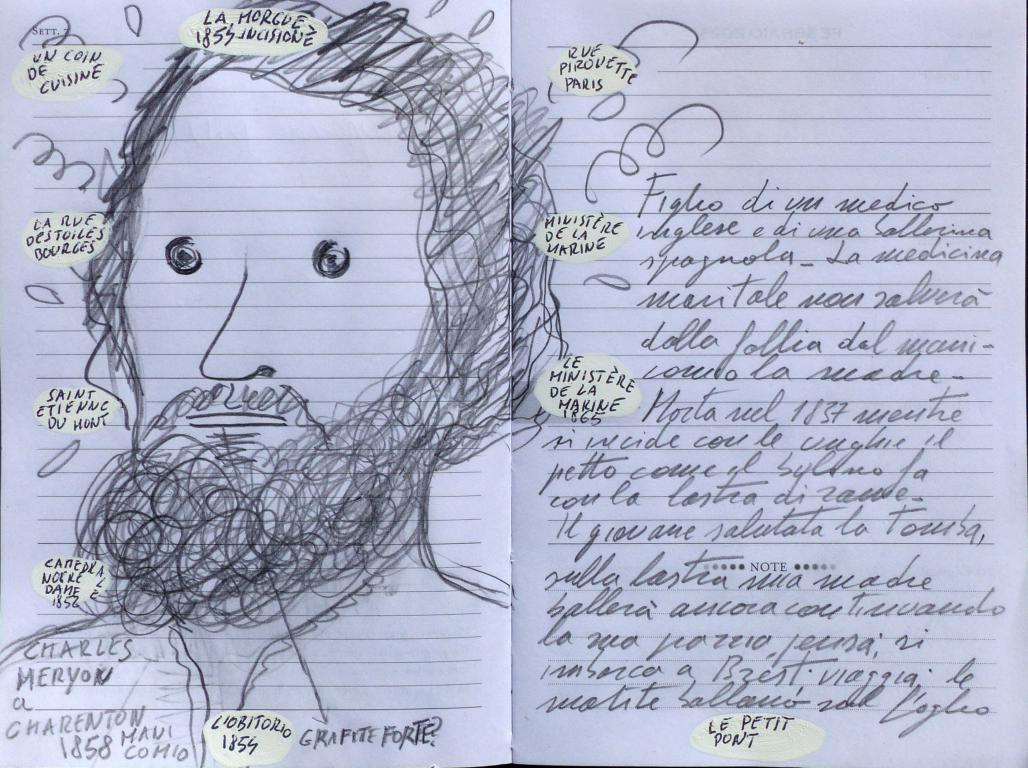 SETT.
LA MORGUE,
1854 INCISIONE
UN COIN
DE
CUISINE
LA RUE
DESTOILES
BOURGES
SAINT
ETIENNE
DU MONT
CATEDRA
NOTRE
DAME
CHARLES
MERYON
a
CHARENTON
1858 MANI
COMIO
L'OBITORIO
1854
GRAFITE FORTE?
RUE
PIROUETTE
PARIS
MINISTÈRE
DE LA
MARINE
LE
MINISTÈRE
DE LA
MARINE
1865
Figlio di un medico
inglese e di una ballerina
spagnola_ La medicina
maritale non salverà
dalla follia dal mani-
comio la madre_
Morta nel 1837 mentre
si incide con le unghie il
petto come il bulino fa
con la lastra di rame_
Il giovane salutata la Tomba,
NOTE
sulla lastra mia madre
ballerà ancora continuando
la sua pazzia, pensa, si
imbarca a Brest. viaggia: le
matite ballano sul foglio
LE PETIT
PONT